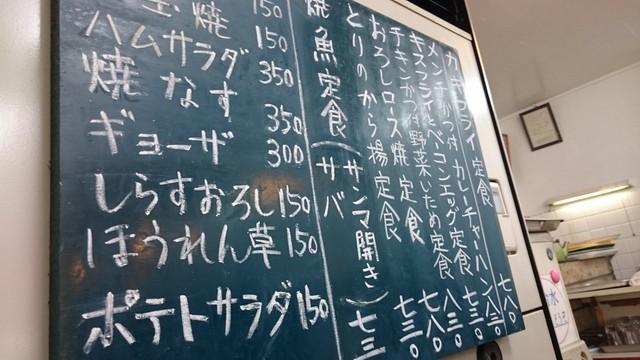 150
焼 150
ハムサラダ 350
焼なす 350
ギョーザ 300
しらすおろし 150
ほうれん草 150
ポテトサラダ 150
カキフライ定食 七八〇
メンチかつ付カレーチャーハン 八三〇
キスフライとベーコンエッグ定食 八三〇
チキンかつ付野菜いため定食 七八〇
おろしロース焼定食 七三〇
とりのから揚定食
焼魚定食(サバ サンマ開き) 七三